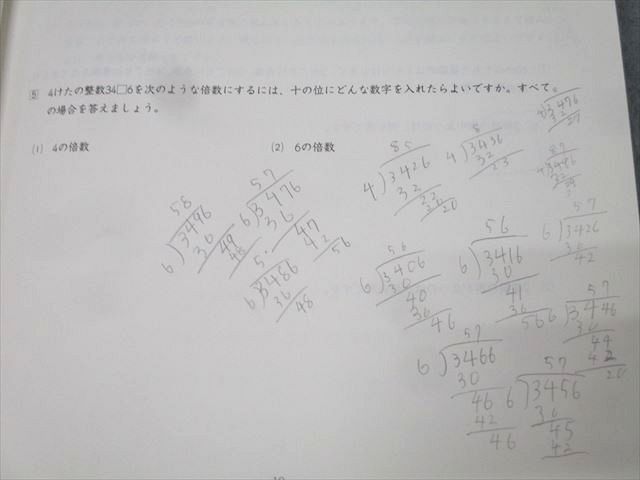 5 4けたの整数34□6を次のような倍数にするには、十の位にどんな数字を入れたらよいですか。すべて
の場合を答えましょう。
(1) 4の倍数
(2) 6の倍数
58
6)3496
30
49
48
57
6)3476
36
47
42
56
5
6)3486
36
48
85
4)3426
32
20
8
4)3436
32
23
3476
27
87
3496
32
56
6)3406
30
40
36
46
56
6)3416
30
41
36
56
57
6)3426
30
42
57
6)3446
30
44
42
20
57
6)3466
30
46
42
46
57
6)3456
30
45
42